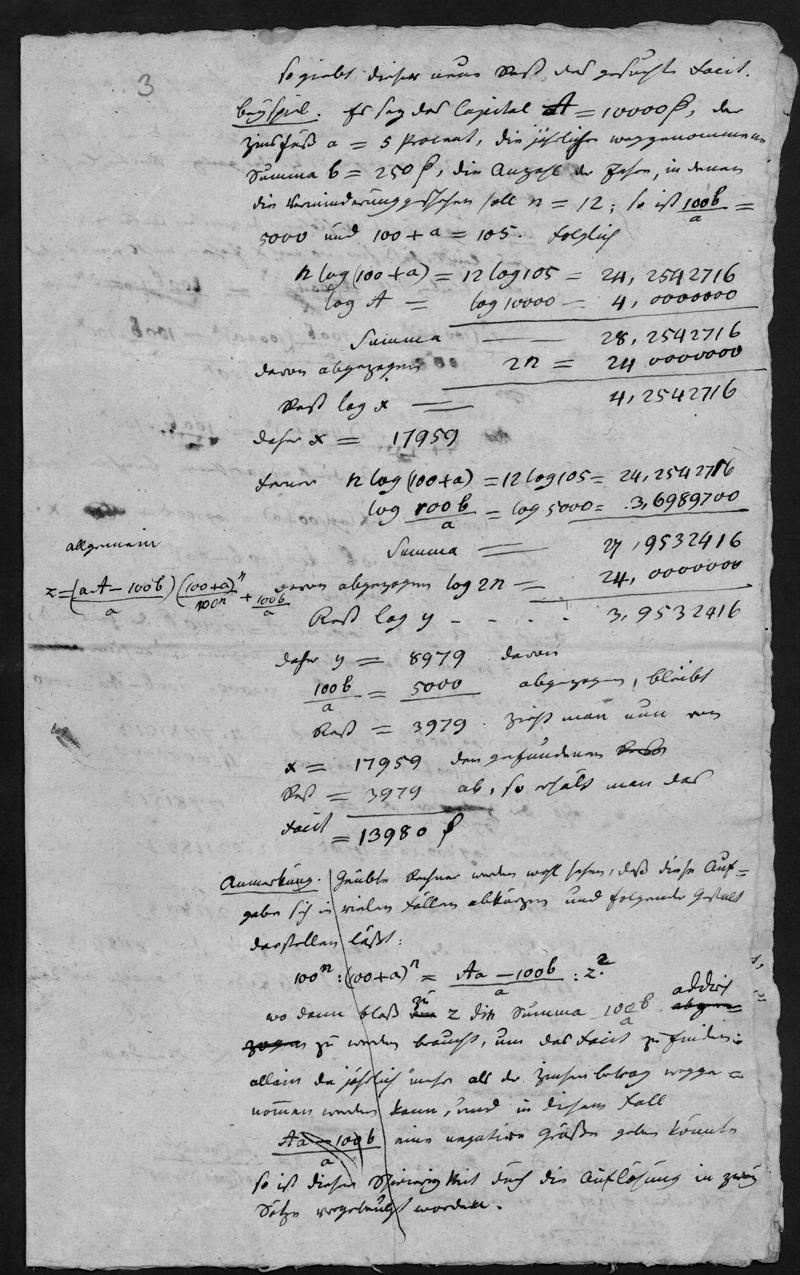 3
so giebt dieser neue Rest das gesuchte Facit.
Beyspiel. Es sey das Capital A = 10000 f, der
Zinsfuß a = 5 Procent, die jährlich weggenommene
Summa b = 250 f, die Anzahl der Jahre, in denen
die Verminderung geschehen soll n = 12; so ist 100b/a =
5000 und 100 + a = 105. folglich
n log (100 + a) = 12 log 105 = 24,2542716
log A = log 10000 = 4,0000000
Summa — 28,2542716
davon abgezogen 2n = 24 0000000
Rest log x = 4,2542716
daher x = 17959
ferner n log (100 + a) = 12 log 105 = 24,2542716
log 100b/a = log 5000 = 3,6989700
Summa = 27,9532416
davon abgezogen log 2n = 24,0000000
Rest log y - - - - 3,9532416
allgemein
z = (aA - 100b / a) (100+a)^n / 100^n + 100b/a
daher y = 8979 davon
100b/a = 5000 abgezogen, bleibt
Rest = 3979. Zieht man nun von
x = 17959 den gefundenen Rest
Rest = 3979 ab, so erhält man das
Facit = 13980 f
Anmerkung. Geübte Rechner werden wohl sehen, daß diese Auf=
gabe sich in vielen Fällen abkürzen und folgende Gestalt
darstellen läßt:
100^n : (100+a)^n = Aa - 100b / a : z.
wo dann bloß zu z die Summa 100b/a addirt
zu werden braucht, um das Facit zu finden:
allein da jährlich mehr als der Zinsenbetrag wegge=
nommen werden kann, und in diesem Fall
Aa - 100b / a eine negative Größe geben könnte
so ist dieser Schwierigkeit durch die Auflösung in zwey
Sätze vorgebeugt worden.